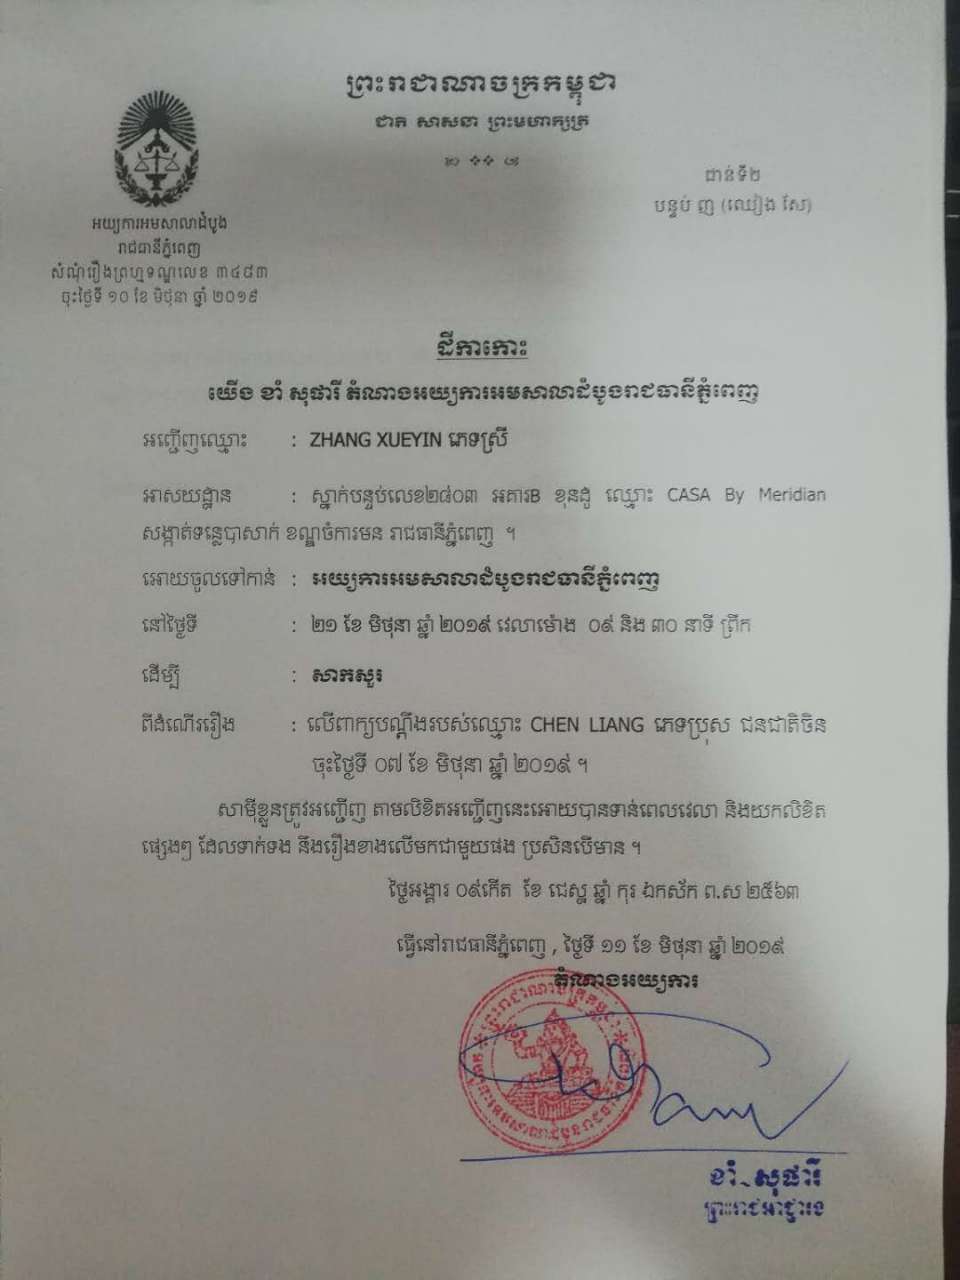 ព្រះរាជាណាចក្រកម្ពុជា
ជាតិ សាសនា ព្រះមហាក្សត្រ
ជាន់ទី២
បន្ទប់ ញ (ឈៀង សែ)
អយ្យការអមសាលាដំបូង
រាជធានីភ្នំពេញ
សំណុំរឿងព្រហ្មទណ្ឌលេខ ៣៤៨៣
ចុះថ្ងៃទី ១០ ខែ មិថុនា ឆ្នាំ ២០១៩
ដីកាកោះ
យើង ខាំ សុផារី តំណាងអយ្យការអមសាលាដំបូងរាជធានីភ្នំពេញ
អញ្ជើញឈ្មោះ : ZHANG XUEYIN ភេទស្រី
អាសយដ្ឋាន : ស្នាក់បន្ទប់លេខ២៨០៣ អគារB ខុនដូ ឈ្មោះ CASA By Meridian
សង្កាត់ទន្លេបាសាក់ ខណ្ឌចំការមន រាជធានីភ្នំពេញ ។
អោយចូលទៅកាន់ : អយ្យការអមសាលាដំបូងរាជធានីភ្នំពេញ
នៅថ្ងៃទី : ២១ ខែ មិថុនា ឆ្នាំ ២០១៩ វេលាម៉ោង ០៩ និង ៣០ នាទី ព្រឹក
ដើម្បី : សាកសួរ
ពីដំណើររឿង : លើពាក្យបណ្តឹងរបស់ឈ្មោះ CHEN LIANG ភេទប្រុស ជនជាតិចិន
ចុះថ្ងៃទី ០៧ ខែ មិថុនា ឆ្នាំ ២០១៩ ។
សាម៉ីខ្លួនត្រូវអញ្ជើញ តាមលិខិតអញ្ជើញនេះអោយបានទាន់ពេលវេលា និងយកលិខិត
ផ្សេងៗ ដែលទាក់ទង នឹងរឿងខាងលើមកជាមួយផង ប្រសិនបើមាន ។
ថ្ងៃអង្គារ ០៩កើត ខែ ជេស្ឋ ឆ្នាំ កុរ ឯកស័ក ព.ស ២៥៦៣
ធ្វើនៅរាជធានីភ្នំពេញ , ថ្ងៃទី ១១ ខែ មិថុនា ឆ្នាំ ២០១៩
តំណាងអយ្យការ
ខាំ សុផារី
ព្រះរាជអាជ្ញារង